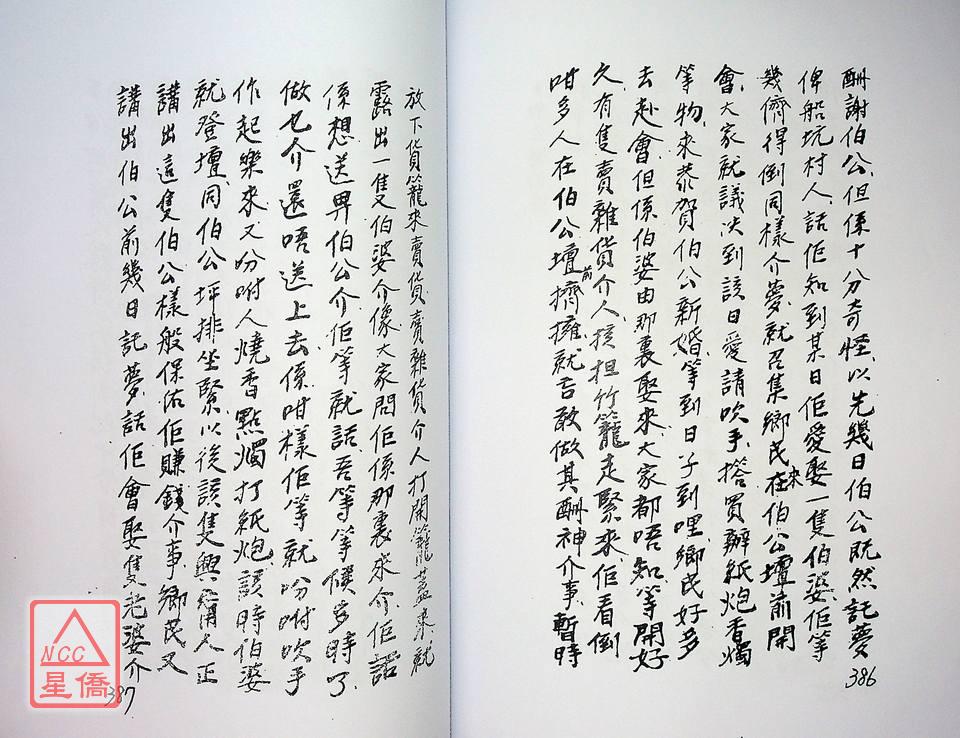 酬謝伯公、但係十分奇怪、以先幾日伯公既然託夢
俾船坑村人、話佢知到某日佢愛娶一隻伯婆、佢等
幾儕得倒同樣介夢、就召集鄉民來在伯公壇前開
會、大家就議決到該日愛請吹手、搭買辦紙炮香燭
等物、來恭賀伯公新婚、等到日子到哩、鄉民好多
去赴會、但係伯婆由那裏娶來、大家都唔知、等開好
久、有隻賣雜貨介人、核担竹籠走緊來、佢看倒
咁多人在伯公壇前擠擁、就吾敢做其酬神介事、暫時
386
放下貨籠來賣貨、賣雜貨介人打開籠蓋來、就
露出一隻伯婆介像、大家問佢係那裏來介、佢話
係想送畀伯公介、佢等就話、吾等等候多時了、
做乜介還唔送上去、係咁樣佢等就吩咐吹手
作起樂來、又吩咐人燒香點燭打紙炮、該時伯婆
就登壇、同伯公坪排坐緊、以後該隻興甯人正
講出這隻伯公樣般保佑佢賺錢介事、鄉民又
講出伯公前幾日託夢、話佢會娶隻老婆介
387
NCC
星僑